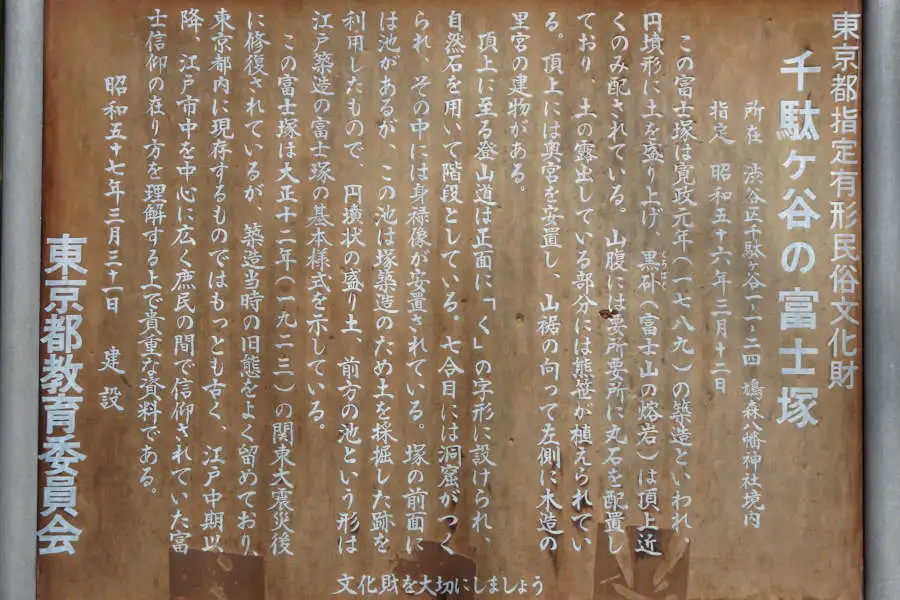 東京都指定有形民俗文化財
千駄ヶ谷の富士塚
所在 渋谷区千駄ヶ谷一-一-二四 鳩森八幡神社境内
指定 昭和五十六年三月十二日
この富士塚は寛政元年(一七八九)の築造といわれ、
円墳形に土を盛り上げ、黒朴(富士山の熔岩)は頂上近
くのみ配されている。山腹には要所要所に丸石を配置し
ており、土の露出している部分には熊笹が植えられてい
る。頂上には奥宮を安置し、山裾の向って左側に木造の
里宮の建物がある。
頂上に至る登山道は正面に「く」の字形に設けられ、
自然石を用いて階段としている。七合目には洞窟がつく
られ、その中には身禄像が安置されている。塚の前面に
は池があるが、この池は塚築造のため土を採掘した跡を
利用したもので、円墳状の盛り土、前方の池という形は
江戸築造の富士塚の基本様式を示している。
この富士塚は大正十二年(一九二三)の関東大震災後
に修復されているが、築造当時の旧態をよく留めており、
東京都内に現存するものではもっとも古く、江戸中期以
降、江戸市中を中心に広く庶民の間で信仰されていた富
士信仰の在り方を理解する上で貴重な資料である。
昭和五十七年三月三十一日 建設
東京都教育委員会
文化財を大切にしましょう